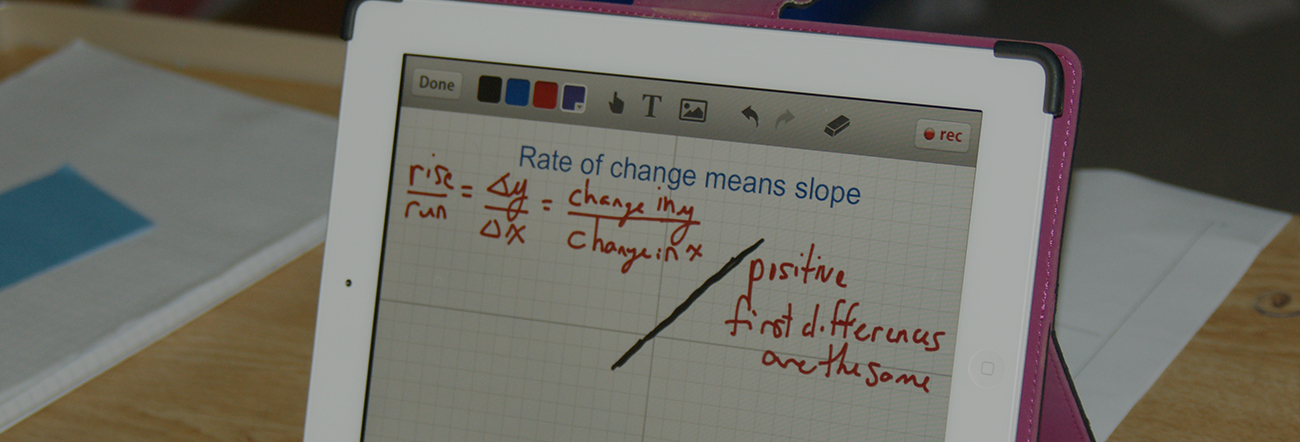 Done T rec
Rate of change means slope
rise = Δy = change in y
run Δx change in x
positive
first differences
are the same